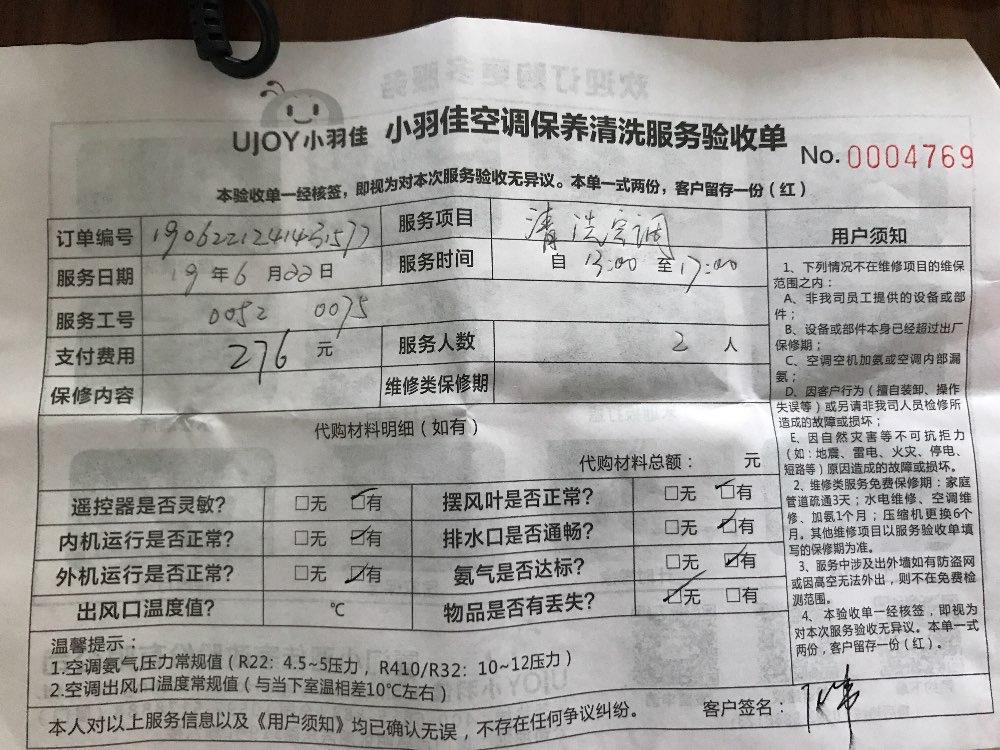 UJOY小羽佳 小羽佳空调保养清洗服务验收单
No. 0004769
本验收单一经核签，即视为对本次服务验收无异议。本单一式两份，客户留存一份（红）
订单编号 服务项目 清洗空调
服务日期 19 年 6 月 22 日 服务时间 自 13:00 至 17:00
服务工号 0052 0075
支付费用 276 元 服务人数 2 人
保修内容 维修类保修期
代购材料明细（如有）
代购材料总额： 元
遥控器是否灵敏? □无 ☑有 摆风叶是否正常? □无 ☑有
内机运行是否正常? □无 ☑有 排水口是否通畅? □无 ☑有
外机运行是否正常? □无 ☑有 氨气是否达标? □无 ☑有
出风口温度值? ℃ 物品是否有丢失? ☑无 □有
温馨提示：
1.空调氨气压力常规值（R22：4.5~5压力，R410/R32：10~12压力）
2.空调出风口温度常规值（与当下室温相差10℃左右）
本人对以上服务信息以及《用户须知》均已确认无误，不存在任何争议纠纷。 客户签名：
用户须知
1、下列情况不在维修项目的维保
范围之内：
A、非我司员工提供的设备或部
件；
B、设备或部件本身已经超过出厂
保修期；
C、空调空机加氨或空调内部漏
氨；
D、因客户行为（擅自装卸、操作
失误等）或另请非我司人员检修所
造成的故障或损坏；
E、因自然灾害等不可抗拒力
（如：地震、雷电、火灾、停电、
短路等）原因造成的故障或损坏。
2、维修类服务免费保修期：家庭
管道疏通3天；水电维修、空调维
修、加氨1个月；压缩机更换6个
月。其他维修项目以服务验收单填
写的保修期为准。
3、服务中涉及出外墙如有防盗网
或因高空无法外出，则不在免费检
测范围。
4、本验收单一经核签，即视为
对本次服务验收无异议。本单一式
两份，客户留存一份（红）。